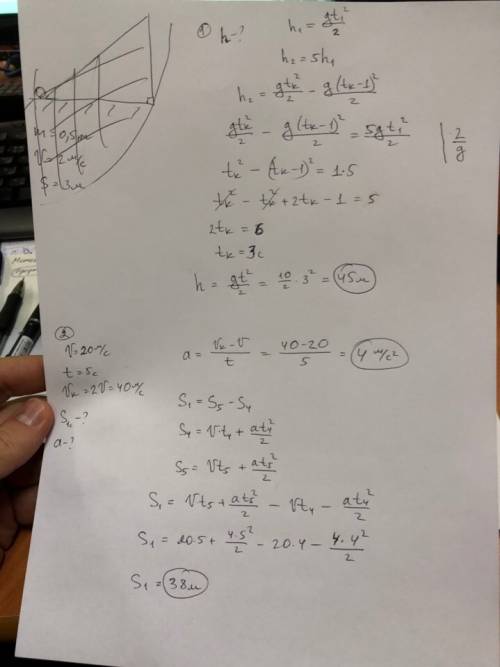 ① h-?
h₁ = gt₁²/2
h₂ = 5h₁
h₂ = gtк²/2 - g(tк-1)²/2
gtк²/2 - g(tк-1)²/2 = 5gt₁²/2 | · 2/g
tк² - (tк-1)² = 1·5
tк² - tк² + 2tк - 1 = 5
2tк = 6
tк = 3с
h = gt²/2 = 10/2 · 3² = 45м
m = 0,5
V = 2 м/с
S = 3м
②
V = 20 м/с
t = 5с
Vк = 2V = 40 м/с
S₁ - ?
a - ?
a = (Vк - V)/t = (40-20)/5 = 4 м/с²
S₁ = S₅ - S₄
S₄ = V·t₄ + at₄²/2
S₅ = Vt₅ + at₅²/2
S₁ = Vt₅ + at₅²/2 - Vt₄ - at₄²/2
S₁ = 20·5 + 4·5²/2 - 20·4 - 4·4²/2
S₁ = 38м